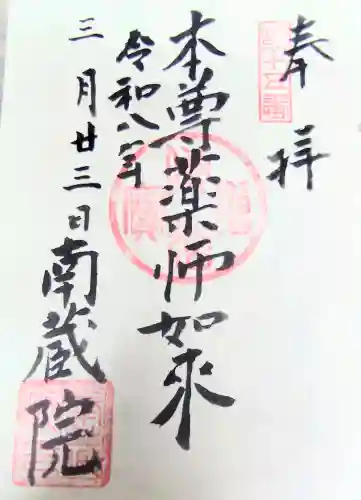 奉拝
本尊薬師如来
令和八年
三月廿三日
南蔵院